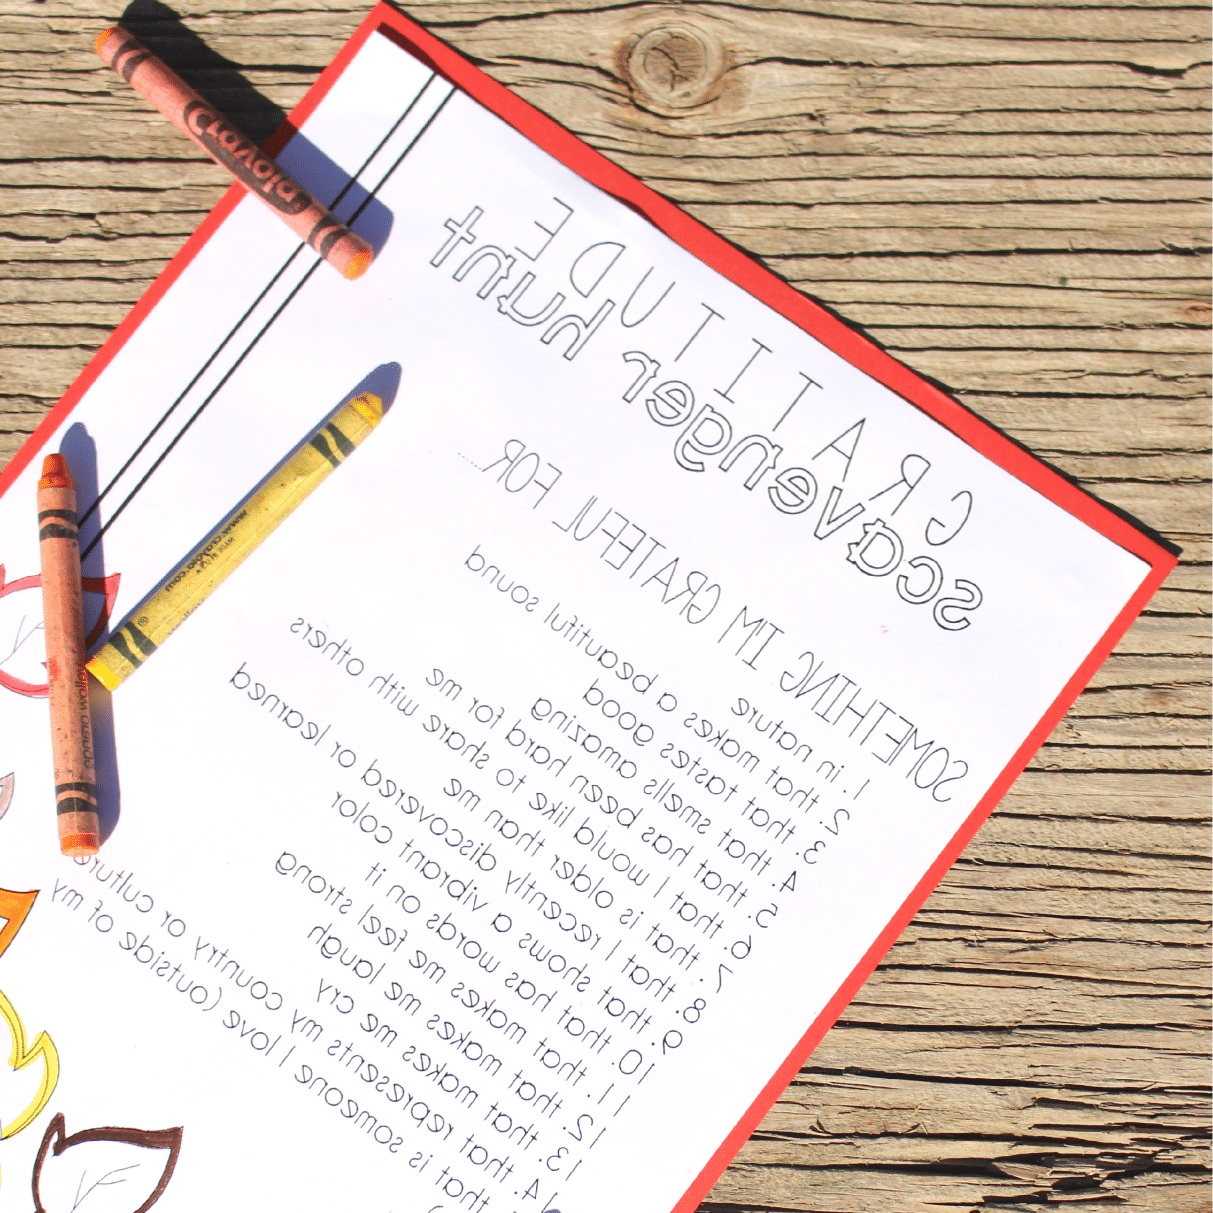 GRATITUDE
scavenger hunt
SOMETHING I'M GRATEFUL FOR......
1. in nature
2. that makes a beautiful sound
3. that tastes good
4. that smells amazing
5. that has been hard for me
6. that I would like to share with others
7. that is older than me
8. that I recently discovered or learned
9. that shows a vibrant color
10. that has words on it
11. that makes me feel strong
12. that makes me laugh
13. that makes me cry
14. that represents my country or culture
that is someone I love (outside of my
Crayola
www.crayola.com
yellow orange